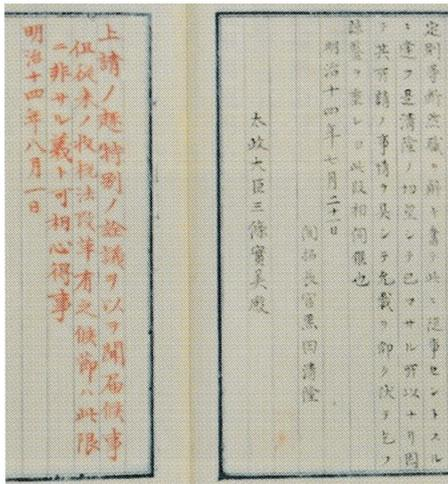 職ヲ解キ書此ニ從事セントスル
是清隆ノ切望シテ已マサル所以ナリ因
テ其所請ノ事情ヲ具シテ允裁ヲ仰ク伏テ乞フ
ヲ垂レヨ此段相伺候也
明治十四年七月二十一日
開拓長官黒田清隆
太政大臣三條實美殿
上請ノ趣特別ノ詮議ヲ以テ聞届候事
但従来ノ收税法改革有之候節ハ此限
ニ非サル義ト可相心得事
明治十四年八月一日